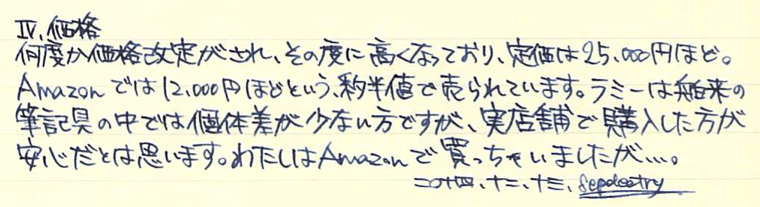 Ⅳ. 価格
何度か価格改定がされ、その度に高くなっており、定価は25,000円ほど。
Amazonでは12,000円ほどという、約半値で売られています。ラミーは舶来の
筆記具の中では個体差が少ない方ですが、実店舗で購入した方が
安心だとは思います。わたしはAmazonで買っちゃいましたが…。
二〇二四、十二、十三、